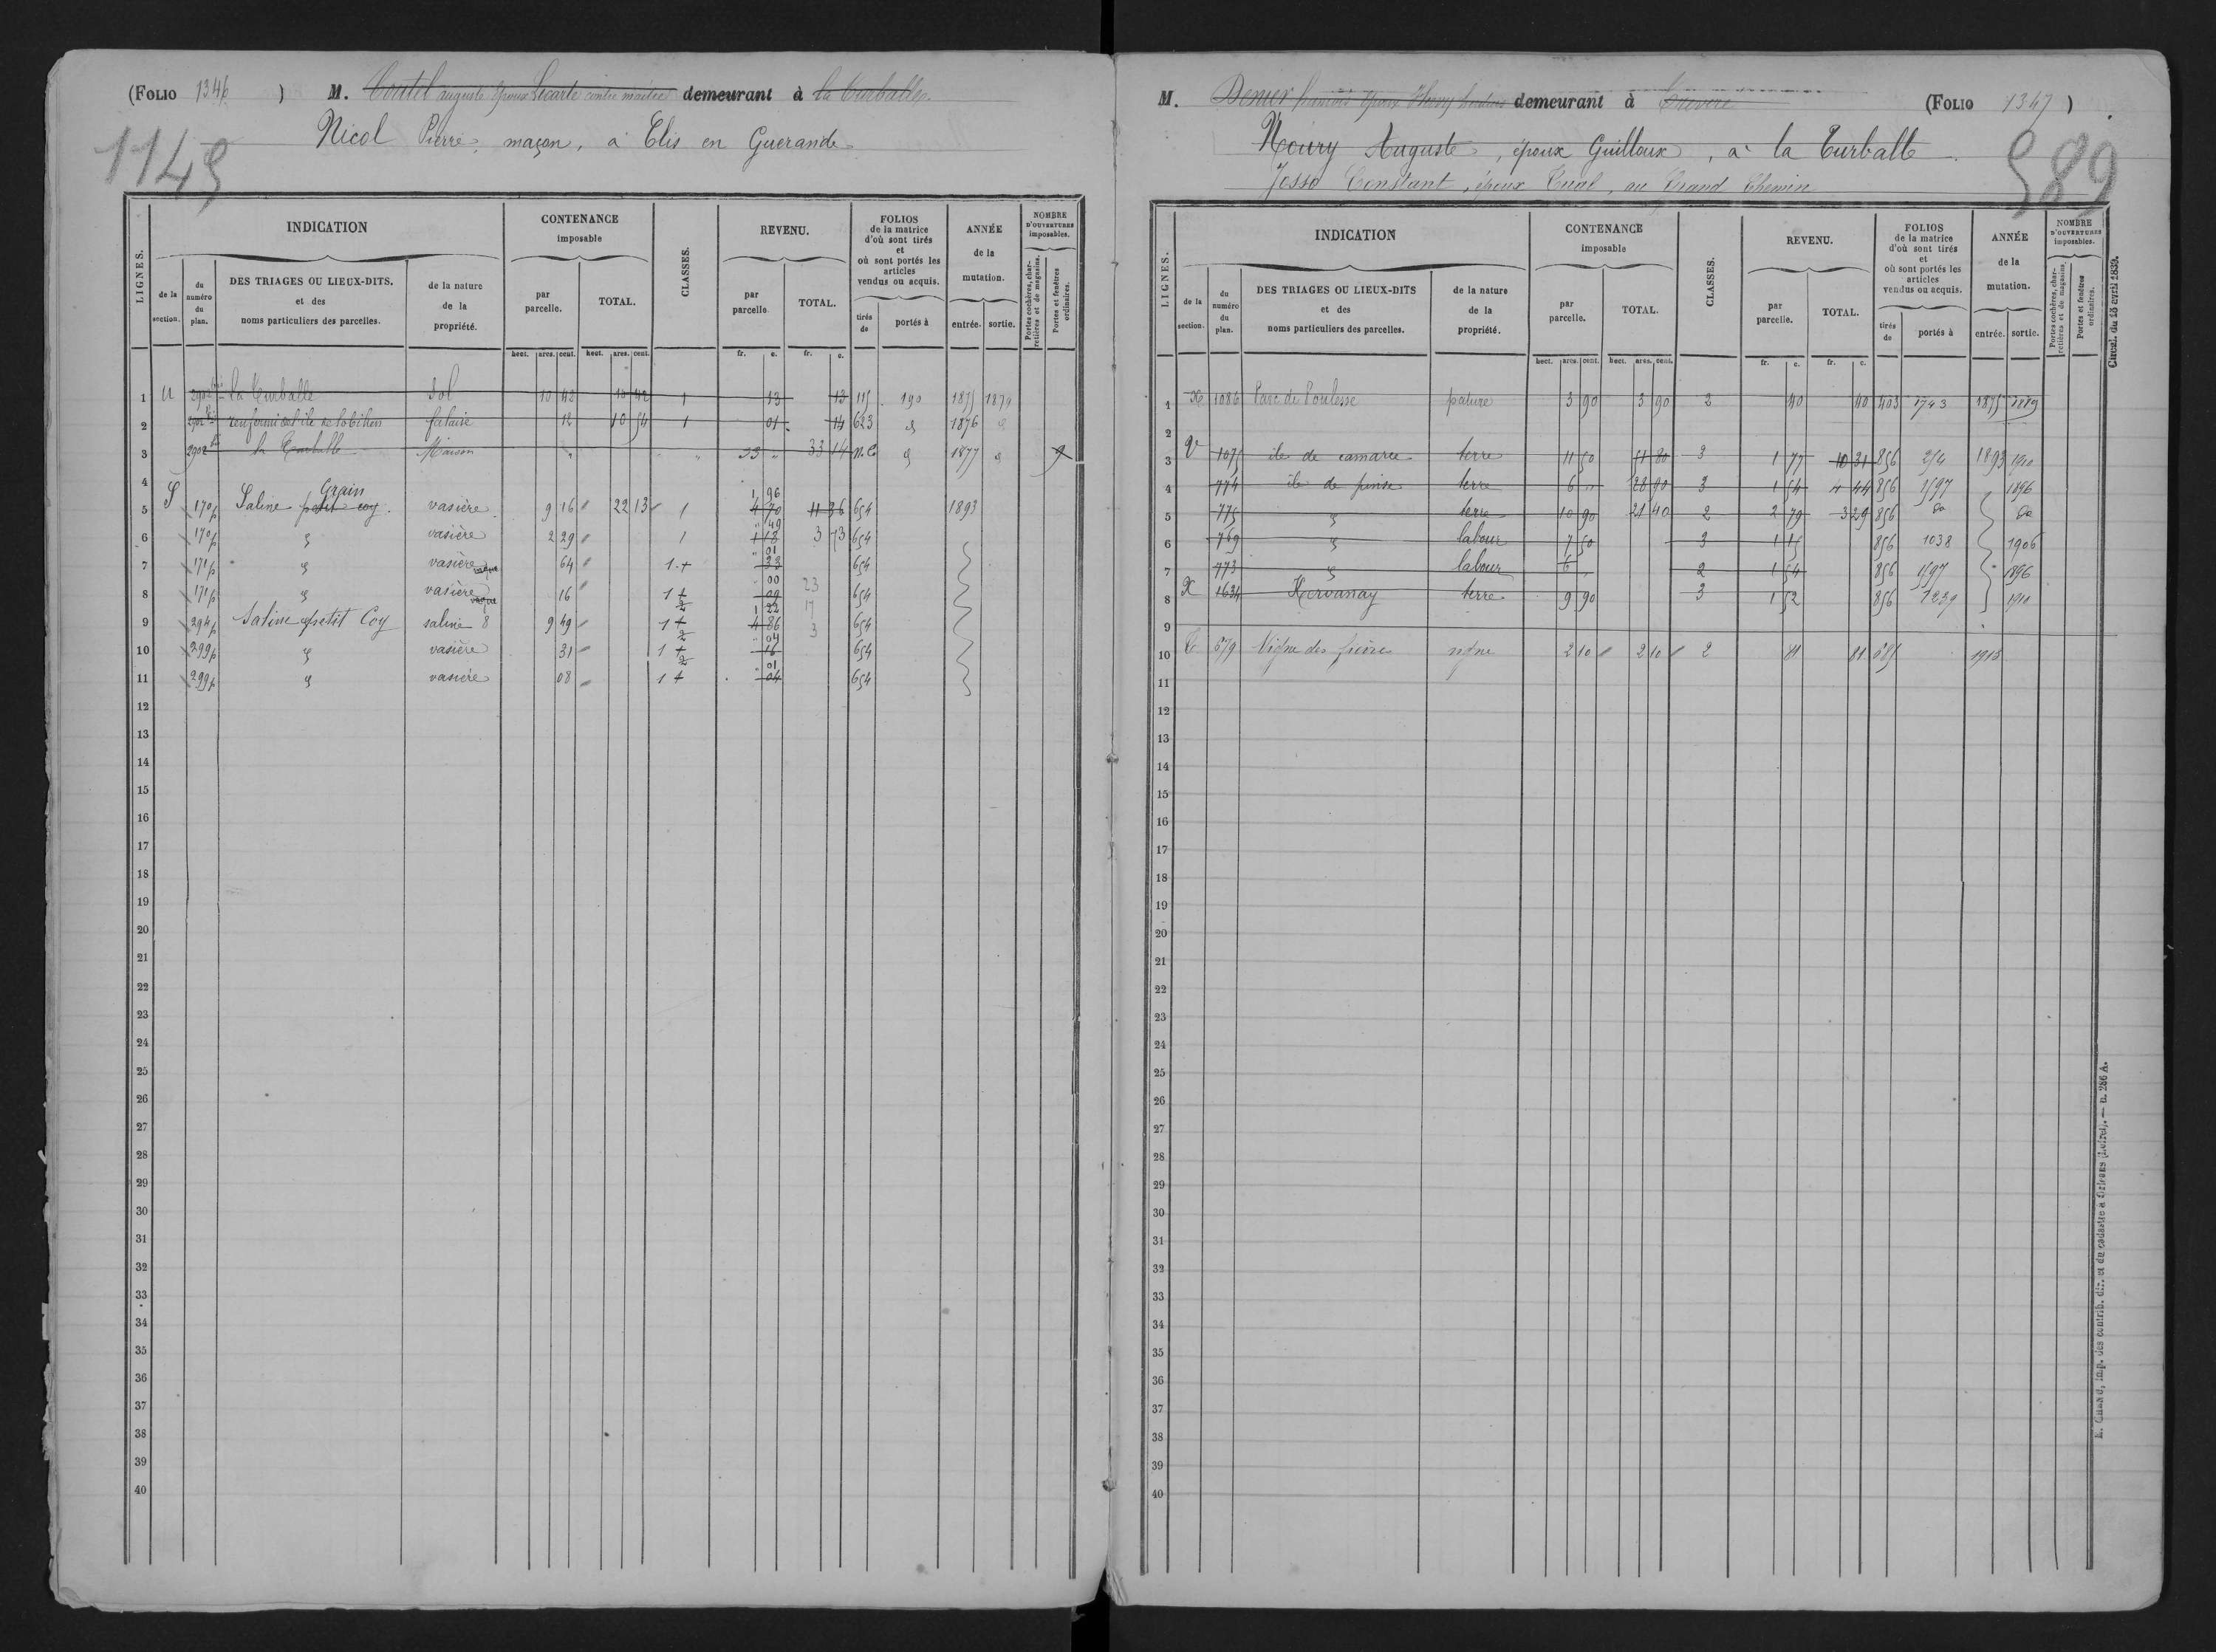 (FOLIO 1346 ) M. Coutel auguste époux Lecarte contre maitre demeurant à la Turballe.
Nicol Pierre, maçon, à Clis en Guérande
1149
LIGNES.
INDICATION
CONTENANCE
imposable
CLASSES.
REVENU.
FOLIOS
de la matrice
d'où sont tirés
et
où sont portés les
articles
vendus ou acquis.
ANNÉE
de la
mutation.
NOMBRE
D'OUVERTURES
imposables.
de la
section.
du
numéro
du
plan.
DES TRIAGES OU LIEUX-DITS.
et des
noms particuliers des parcelles.
de la nature
de la
propriété.
par
parcelle.
TOTAL.
par
parcelle
TOTAL.
tirés
de
portés à
entrée. sortie.
Portes cochères, charretières et de magasins.
Portes et fenêtres ordinaires.
hect. ares. cent. hect. ares. cent. fr. c. fr. c.
1 U 2902 la Turballe Sol 10 42 10 42 1 13 13 115 190 1875 1879
2 2902 falaise 12 10 54 1 01 14 623 1876
3 2902 la Turballe Maison 33 " 33 14 n.c. 1877
4
5 S 170p Saline petit coy Grain vasière 9 16 22 13 1 4 70 1 96 11 36 654 1893
6 170p vasière 2 29 1 1 18 " 49 3 73 654
7 171p vasière 64 1+ 33 01 654
8 171p vasière 16 1+ 09 00 23 654
9 294p Saline petit Coy saline 8 9 49 1+ 4 86 1 22 17 654
10 299p vasière 31 1+ 16 04 3 654
11 299p vasière 08 1+ 04 01 654
12
13
14
15
16
17
18
19
20
21
22
23
24
25
26
27
28
29
30
31
32
33
34
35
36
37
38
39
40
M. Denier francois époux Thoury demeurant à (FOLIO 1347 )
Noury Auguste, époux Guilloux, à la Turballe
Josso Constant, époux Cual, au Grand Chemin
589
LIGNES.
INDICATION
CONTENANCE
imposable
CLASSES.
REVENU.
FOLIOS
de la matrice
d'où sont tirés
et
où sont portés les
articles
vendus ou acquis.
ANNÉE
de la
mutation.
NOMBRE
D'OUVERTURES
imposables.
de la
section.
du
numéro
du
plan.
DES TRIAGES OU LIEUX-DITS
et des
noms particuliers des parcelles.
de la nature
de la
propriété.
par
parcelle.
TOTAL.
par
parcelle.
TOTAL.
tirés
de
portés à
entrée. sortie.
Portes cochères, charretières et de magasins.
Portes et fenêtres ordinaires.
hect. ares. cent. hect. ares. cent. fr. c. fr. c.
1 1086 Parc de Poulesse pature 3 90 3 90 2 40 40 403 1743 1875 1889
2
3 V 1075 ile de camaree terre 11 50 51 80 3 1 77 10 31 856 254 1893 1910
4 774 ile de terre 6 " 28 90 3 1 54 4 44 856 1597 1896
5 775 terre 10 90 21 40 2 2 79 3 29 856 do do
6 769 labour 7 50 3 1 15 856 1038 1906
7 773 labour 6 2 1 54 856 1597 1896
8 X 1634 Kervanay terre 9 90 3 1 52 856 1239 1910
9
10 679 Vigne des vigne 2 10 2 10 2 81 81 1913
11
12
13
14
15
16
17
18
19
20
21
22
23
24
25
26
27
28
29
30
31
32
33
34
35
36
37
38
39
40
Circul. du 25 avril 1839.
imp. des contrib. dir. et du cadastre à Orléans (Loiret). — n. 286 A.